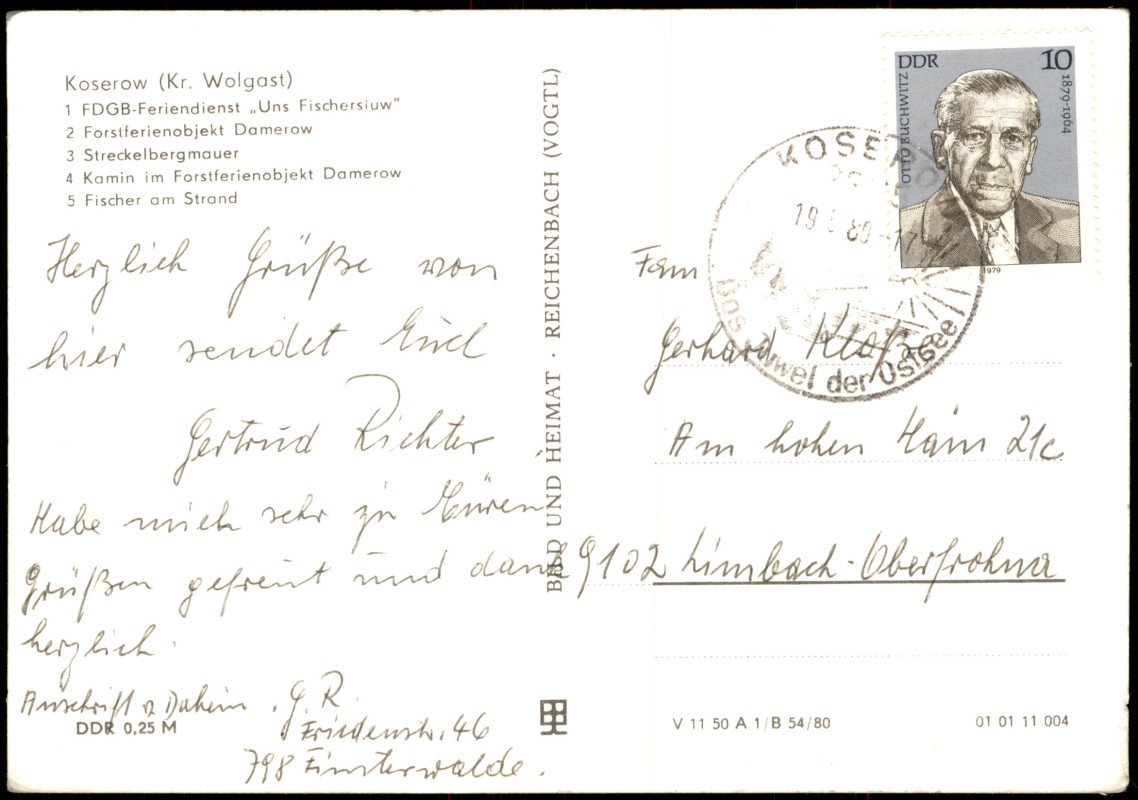 Koserow (Kr. Wolgast)
1 FDGB-Feriendienst „Uns Fischersiuw"
2 Forstferienobjekt Damerow
3 Streckelbergmauer
4 Kamin im Forstferienobjekt Damerow
5 Fischer am Strand
Herzlich Grüße von
hier sendet Euch
Gertrud Richter
Habe mich sehr zu Eüren
Grüßen gefreut und danke
herzlich.
Anschrift v Daheim . G. R.
Friedenstr. 46
798 Finsterwalde.
DDR 0,25 M
BILD UND HEIMAT · REICHENBACH (VOGTL)
DDR 10
OTTO BUCHWITZ
1879-1964
1979
KOSEROW
19 80-17
der Ostsee
Fam
Gerhard
Am hohen Hain 21c
9102 Limbach-Oberfrohna
V 11 50 A 1/B 54/80
01 01 11 004